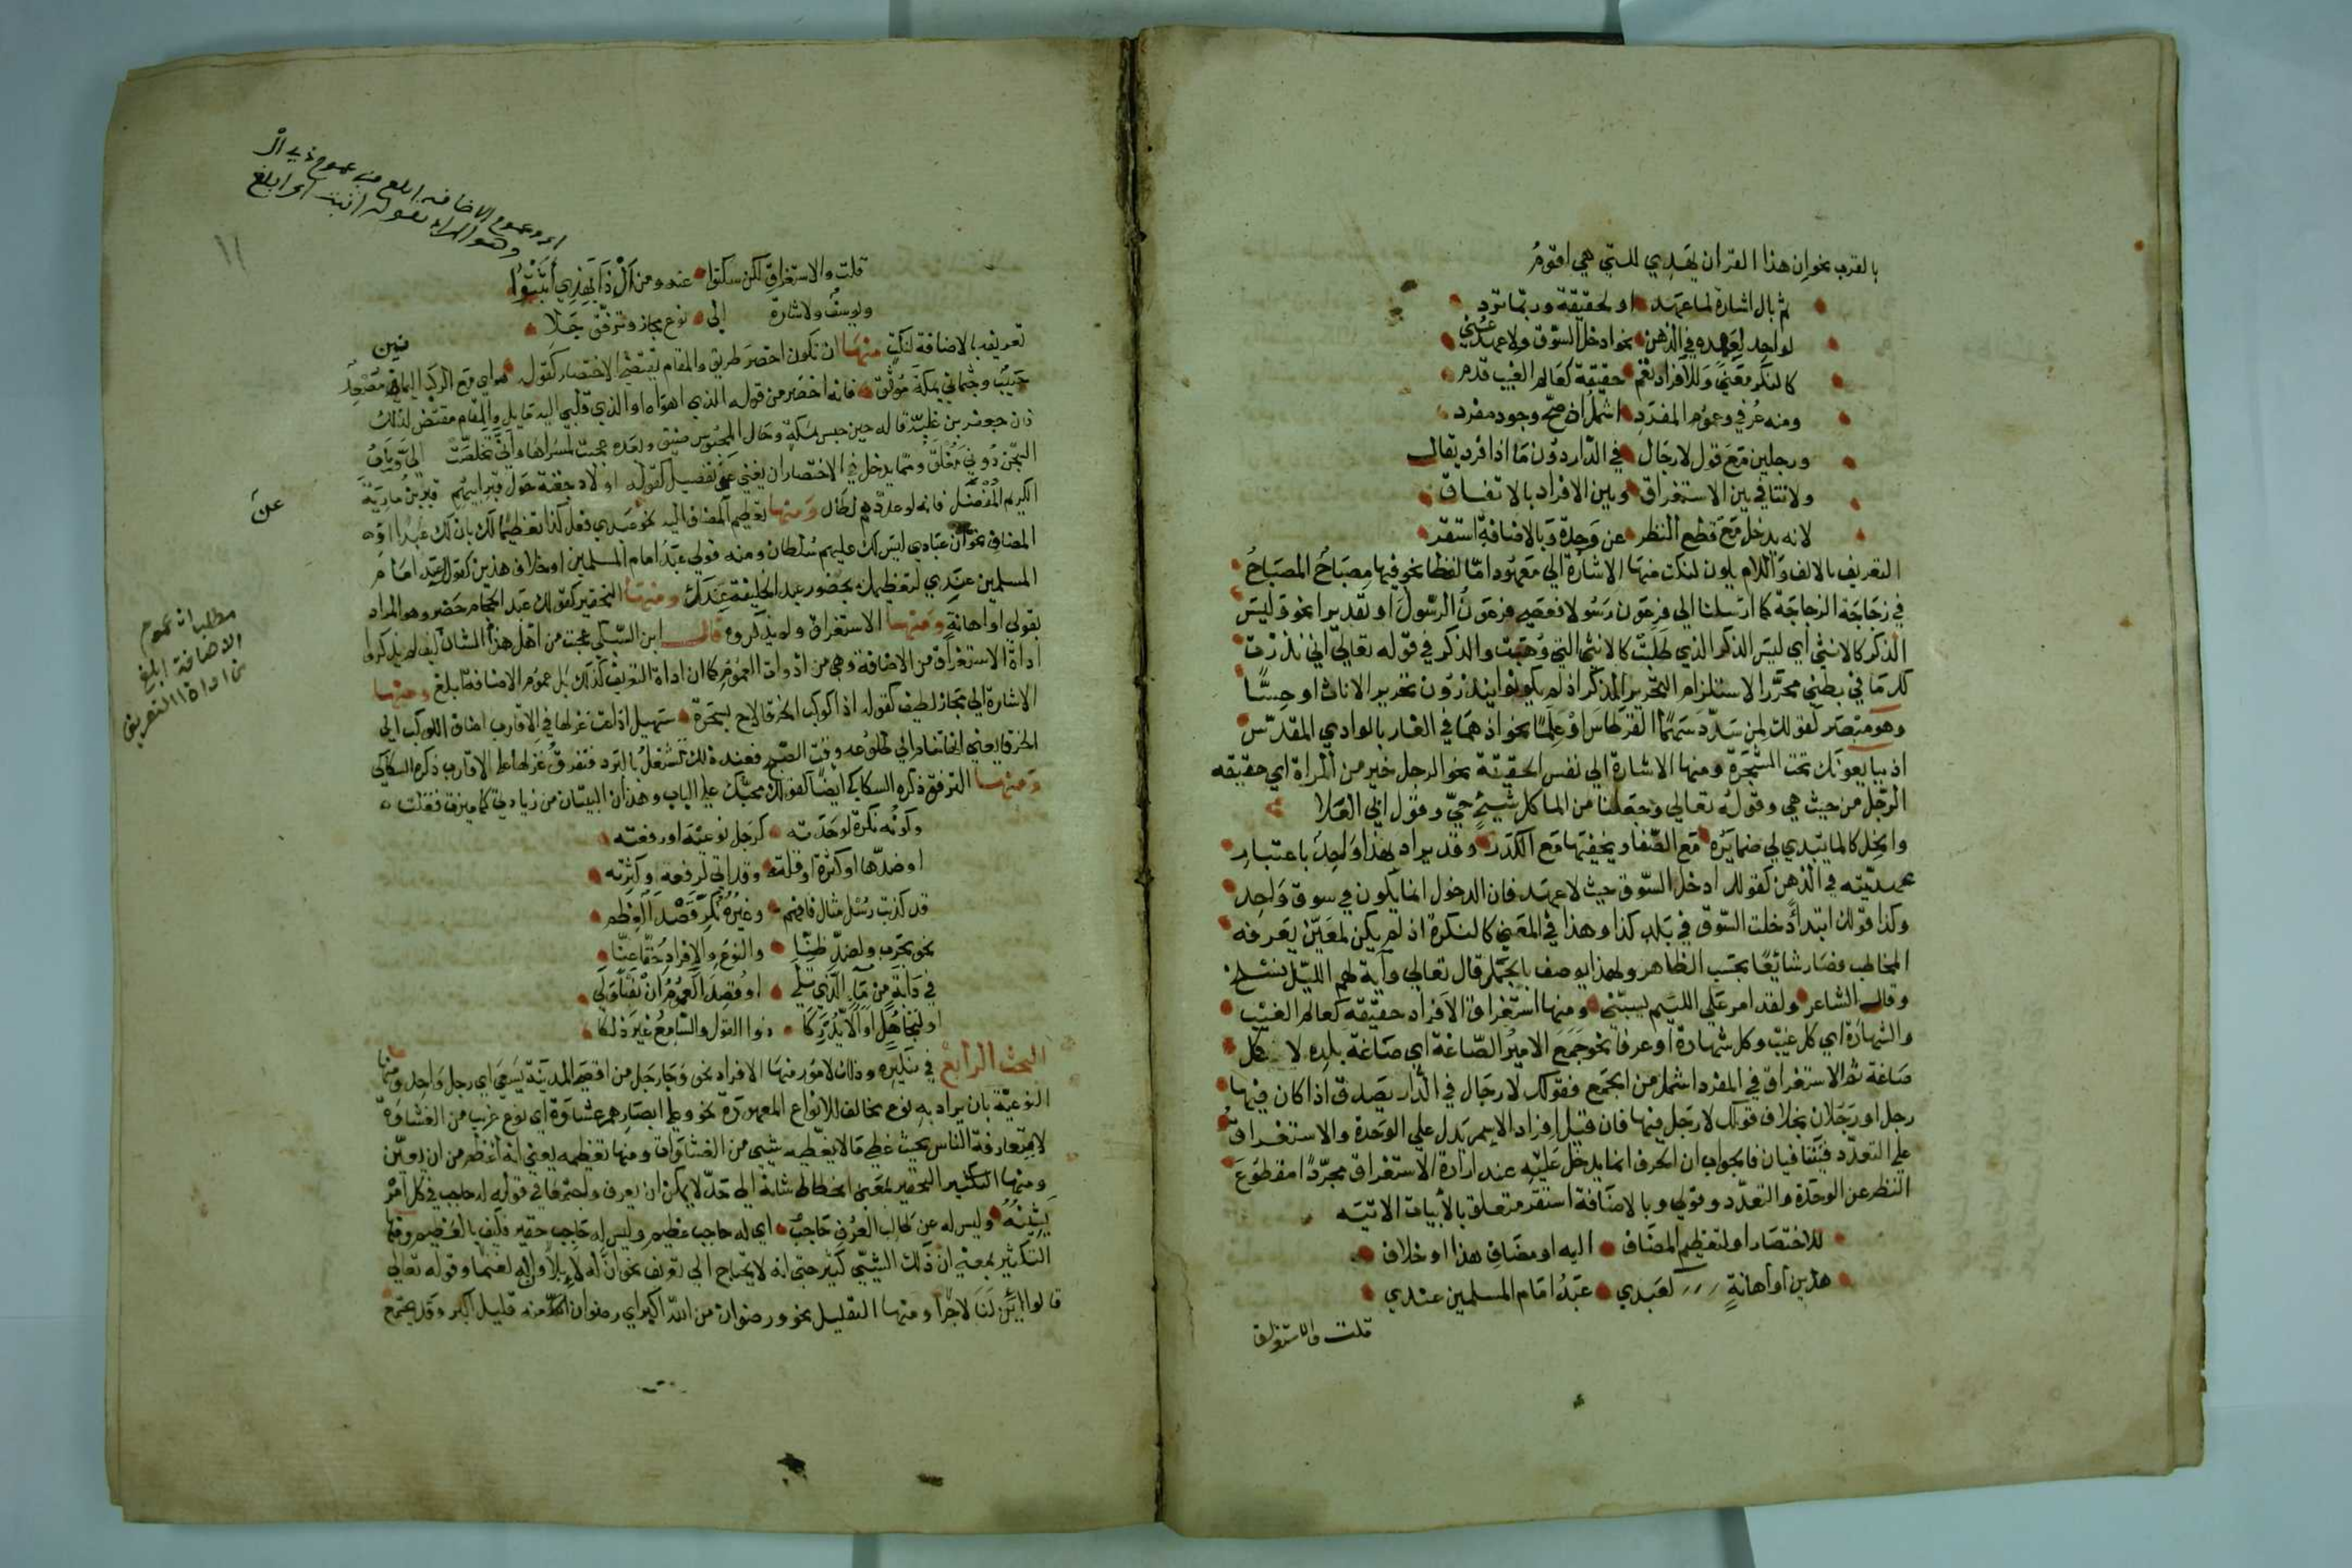 بالقرب نحو ان هذا القران يهدي للتي هي اقوم
ثم بال اشارة لما عهد او لحقيقة وربما ترد
لواحد لعهده في الذهن نحو ادخل السوق ولا عهد عني
كالنكر معنى وللافراد تعم حقيقة كعالم الغيب قدم
ومنه عرفي وعموم المفرد اشمل اذ صح وجود مفرد
ورجلين مع قول لا رجال في الدار دون ما اذا فرد يقال
ولا تنافي بين الاستغراق وبين الافراد بالاتفاق
لانه يدخل مع قطع النظر عن وحدة وبالاضافة استقر
التعريف بالالف واللام يكون لنكت منها الاشارة الي معهود اما لفظا نحو فيها مصباح المصباح
في زجاجة الزجاجة كما ارسلنا الي فرعون رسولا فعصي فرعون الرسول او تقديرا نحو وليس
الذكر كالانثى اي ليس الذكر الذي طلبت كالانثى التي وهبت والذكر في قوله تعالى اني نذرت
لك ما في بطني محررا لاستلزام التحرير الذكر اذ لم يكونوا ينذرون تحرير الاناث او حسا
وهو مبتصر كقولك لمن سدد سهما القرطاس او علما نحو اذ هما في الغار بالوادي المقدس
اذ يبايعونك تحت الشجرة ومنها الاشارة الي نفس الحقيقة نحو الرجل خير من المراة اي حقيقه
الرجل من حيث هي وقوله تعالي وجعلنا من الما كل شيئ حي وقول ابي العلا
والخل كالما يبدي لي ضمايره مع الصفا ويخفيها مع الكدر وقد يراد بهذا واحد باعتبار
عهديته في الذهن كقولك ادخل السوق حيث لا عهد فان الدخول انما يكون في سوق واحد
وكذا قولك ابتدا دخلت السوق في بلد كذا وهذا في المعني كالنكرة اذ لم يكن لمعين يعرفه
المخاطب فصار شائعا بحسب الظاهر ولهذا يوصف بالجمل قال تعالي وآية لهم الليل نسلخ
وقال الشاعر ولقد امر علي اللئيم يسبني ومنها استغراق الافراد حقيقة كعالم الغيب
والشهادة اي كل غيب وكل شهادة او عرفا نحو جمع الامير الصاغة اي صاغة بلده لا كل
صاغة ثم الاستغراق في المفرد اشمل من الجمع فقولك لا رجال في الدار يصدق اذا كان فيها
رجل او رجلان بخلاف قولك لا رجل فيها فان قيل افراد الاسم يدل علي الوحدة والاستغراق
علي التعدد فيتنافيان فالجواب ان الحرف انما يدخل عليه عند ارادة الاستغراق مجردا مقطوع
النظر عن الوحدة والتعدد وقولي وبالاضافة استقر متعلق بالأبيات الاتيه
للاختصار او لتعظيم المضاف اليه او مضاف هذا او خلاف
هذين او اهانة كعبدي عبد امام المسلمين عندي
قلت والاستغراق
اي وعموم الاضافة ابلغ من عموم ذي ال
وهو المراد بقوله اثبت اي ابلغ
١١
قلت والاستغراق لكن سكتوا عنه ومن ال ذا بهذي أثبت
تعريفه بالاضافة لنكت منها ان تكون اخصر طريق والمقام يقتضي الاختصار كقوله هواي مع الركب اليمانين مصعد
جنيب وجثماني بمكة موثق فانه اخصر من قوله الذي اهواه او الذي قلبي اليه مايل والمقام مقتض لذلك
فان جعفر بن علبة قاله حين حبس بمكة وحال المحبوس ضيق وبعده عجبت لمسراها واني تخلصت الي وباب
السجن دوني مغلق ومما يدخل في الاختصار ان يغني عن تفصيل كقوله اولاد جفنة حول قبر ابيهم قبر بن مارية
الكريم المفضل فانه لو عددهم لطال ومنها تعظيم المضاف اليه نحو عبدي فعل كذا تعظيما لك بان لك عبدا او
المضاف نحو ان عبادي ليس لك عليهم سلطان ومنه قولي عبد امام المسلمين او خلاف هذين كقولك عبد امام
المسلمين عندي تعظيما لك بحضور عبد الخليفة عندك ومنها التحقير كقولك عبد الحجام حضر وهو المراد
بقولي او اهانة ومنها الاستغراق ولم يذكروه قال ابن السبكي عجبت من اهل هذا الشان كيف لم يذكروا
اداة الاستغراق من الاضافة وهي من ادوات العموم كما ان اداة التعريف كذلك بل عموم الاضافة ابلغ ومنها
الاشارة الي مجاز لطيف كقوله اذا كوكب الخرقا لاح بسحرة سهيل اذاعت غزلها في الاقارب اضاف الكوكب الي
ومنها الترفق ذكره السكاكي ايضا كقولك محبك علي الباب وهذان البيتان من زيادتي كما ميزت فقلت
وكونه نكرة لوحدته كرجل نوعية او رفعته
او ضدها او كثرة او قلته وقد اتي لرفعة او كثرته
قد كذبت رسل مثال فافهم وغيره نكر قصد العظم
نحو بحرب ولضد ظنا والنوع والافراد حقا عنا
البحث الرابع في تنكيره وذلك لامور منها الافراد نحو وجا رجل من اقصي المدينة يسعي اي رجل واحد ومنها
النوعية بان يراد به نوع مخالف للانواع المعهودة نحو وعلي ابصارهم غشاوة اي نوع غريب من الغشاوة
لا يتعارفه الناس بحيث غطي ما لا يغطيه شيي من الغشاوات ومنها تعظيمه يعني انه اعظم من ان يعين
ومنها التحقير بمعني انحطاط شانه الي حد لا يمكن ان يعرف واجتمعا في قوله له حاجب في كل امر
يشينه وليس له عن طالب العرف حاجب اي له حاجب عظيم وليس له حاجب حقير فكيف بالعظيم ومنها
التكثير بمعني ان ذلك الشيي كثير حتي انه لا يحتاج الي تعريف نحو ان له لإبلا وان له لغنما وقوله تعالي
قالوا ائن لنا لاجرا ومنها التقليل نحو ورضوان من الله اكبر اي رضوان ما منه قليل اكبر وقد يجتمع
مطلب ان عموم
الاضافة ابلغ
من اداة التعريف